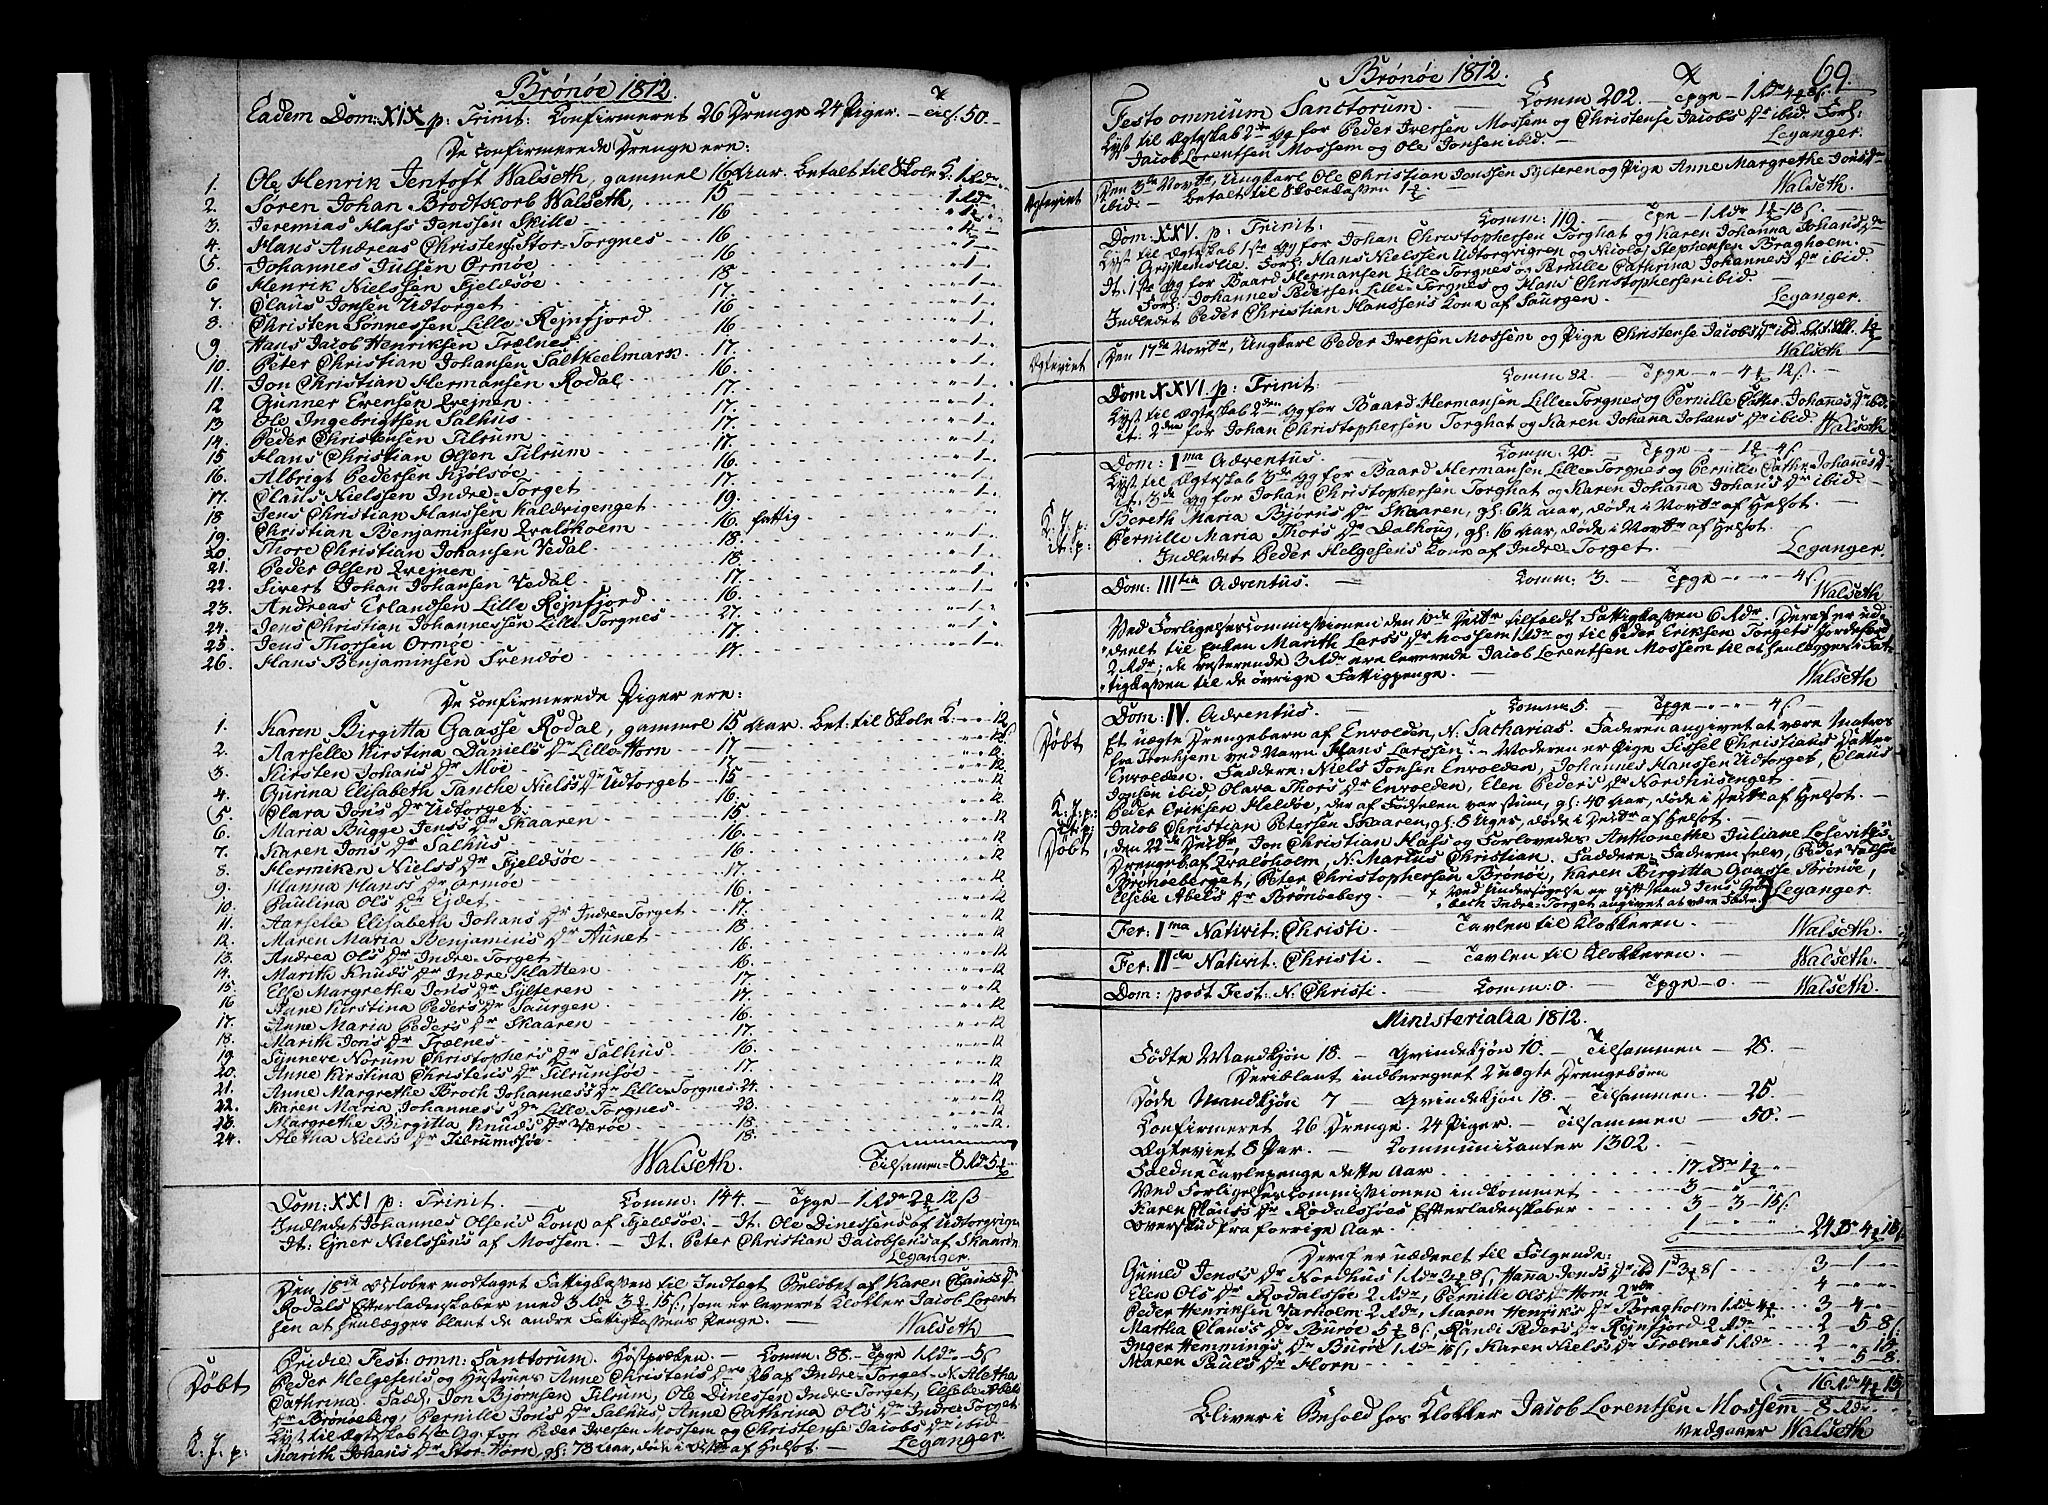 Brønøe 1812.
Eadem Dom: XIX p: Trinit: Confirmeret 26 Drenge 24 Piger. — Tils: 50.
De Confirmerede Drenge ere:
1. Ole Henrik Jentoft Walseth, gammel 16 Aar. betalt til Skole K: 1 Rdr
2. Søren Johan Brodtkorb Walseth, 15 1 Rdr
3. Jeremias Hass Jenssen Skille 16
4. Hans Andreas Christens: Stor-Torgnes 16 1
5. Johannes Julsen Ormøe 16 1
6 Henrik Nielssen Fjeldsøe 18 1
7. Claus Jonsen Udtorget 17 1
8. Christen Sønnessen Lille-Rejnfjord 16 1
9 Hans Jacob Henriksen Trælnes 16 1
10. Peter Christian Johansen Saltkeelmark 17 1
11. Jon Christian Hermansen Rodal 16 1
12 Gunner Evensen Qvejnen 17 1
13 Ole Ingebrigtsen Salhus 17 1
14. Peder Christensen Tilrum 17 1
15 Hans Christian Olsen Tilrum 17 1
16. Albrigt Pedersen Kjølsøe 16 1
17. Claus Nielssen Indre-Torget 17 1
18 Jens Christian Hanssen Kaldvigenget 19 1
19. Christian Benjaminsen Qvaløholm 16 fattig
20 Thore Christian Johansen Vedal 18 1
21. Peder Olsen Qvejnen 18 1
22. Sivert Johan Johansen Vedal 17 1
23. Andreas Erlandsen Lille Rejnfjord 16 1
24. Jens Christian Johannessen Lille-Torgnes 27 1
25. Jens Thorsen Ormøe 17 1
26. Hans Benjaminsen Svendøe 17
De Confirmerede Piger ere:
1. Karen Birgitta Gaasse Rodal, gammel 15 Aar. Bet: til Skole K: 12
2. Aarselle Kirstina Daniels Dr Lille-Horn 17 12
3. Kirsten Johans Dr Moe 17 12
4. Gurina Elisabeth Tanche Niels Dr Udtorget 15 12
5. Clara Jons Dr Udtorget 16 12
6. Maria Bugge Jens Dr Skaaren 15 12
7. Karen Jons Dr Salhus 16 12
8. Hermiken Niels Dr Fjeldsøe 16 12
9. Hanna Hans Dr Ormøe 17 12
10. Paulina Ols Dr Ejdet 16 12
11. Aarselle Elisabeth Johans Dr Indre-Torget 17 12
12. Maren Maria Benjamins Dr Aunet 18 12
13. Andrea Ols Dr Indre-Torget 16 12
14. Marith Knuds Dr Indre Hatten 16 12
15. Else Margrethe Jons Dr Sylteren 17 12
16 Anne Kirstina Peders Dr Saurgen 17 12
17. Anne Maria Peders Dr Skaaren 16 12
18. Marith Jons Dr Trælnes 17 12
19. Synneve Norum Christophers Dr Salhus 16 12
20. Anne Kirstina Christens Dr Tilrumsøe 17 12
21. Anne Margrethe Broch Johannes Dr Lille-Torgnes 24 12
22. Karen Maria Johannes Dr Lille Torgnes 23 12
23. Margrethe Birgitta Knuds Dr Værøe 18 12
24. Aletha Niels Dr Tilrumsøe 18 12
Walseth. Tilsammen 8 Rd 5
Dom: XXI p: Trinit. — Comm: 144. — Tpge — 1 Rdr 2 12 ß
Indledet Johannes Olsens Kone af Fjeldsøe. — It: Ole Dinessens af Udtorgvign
It: Ejner Nielssens af Mossem. — It: Peter Christian Jacobsens af Skaaren
Leganger.
Den 18de October modtaget Fattigkassen til Indtægt Beløbet af Karen Clauss Dr
Rodals Efterladenskaber med 3 Rdr 3 15 ß, som er leveret Klokker Jacob Lorent-
sen at henlægges blant de andre Fattigkassens Penge. — Walseth
Pridie Fest: omn: Sanctorum. Høstpræken. — Comm: 88. — Tpge 1 Rdr — 5 ß
Døbt Peder Helgesens og Hustrues Anne Christens Drs PB af Indre-Torget — N: Aletha
Cathrina. Fadd. Jon Bjørnsen Tilrum, Ole Dinessen Indre-Torget, Elsebe Abels
Dr Brønøeberg, Pernille Jons Dr Salhus, Anne Cathrina Ols Dr Indre-Torget
Lyst til Ægteskab 1ste Gg: for Peder Iversen Mossem og Christense Jacobs Dr ibid
K. J. p: Marith Johans Dr Stor-Horn, gl: 73 Aar, døde i Octbr af Helsot: — Leganger.
Brønøe 1812. 69.
Festo omnium Sanctorum. — Comm 202. — Tpge — 1 Rdr 4 8 ß.
Lyst til Ægteskab 2de Gg for Peder Iversen Mossem og Christense Jacobs Dr ibid. Forl:
Jacob Lorentsen Mossem og Ole Jonsen ibid. Leganger.
Ægteviet Den 3die Novbr, Ungkarl Ole Christian Jonssen Sylteren og Pige Anne Margrethe Jons Dr
ibid. — betalt til Skolekassen 1 Walseth.
Dom: XXV. p: Trinit: Comm: 119. — Tpge — 1 Rdr 1 13 ß.
Lyst til Ægteskab 1ste Gg for Johan Christophersen Torghat og Karen Johanna Johans Dr
Forl: Hans Nielssen Udtorgvigen og Nicolaj Stephensen Bragholm.
It. 1ste Gg for Baard Hermansen Lille-Torgnes og Pernille Cathrina Johannes Dr ibid
Forl: Johannes Pedersen Lille-Torgnes og Hans Christophersen ibid.
Indledet Peder Christian Hanssens Kone af Saurgen. Leganger.
Ægteviet Den 17de Novbr, Ungkarl Peder Iversen Mossem og Pige Christense Jacobs Dr ibid.
Walseth
Dom XXVI p: Trinit: Comm 82. — Tpge — 4 12 ß.
Lyst til Ægteskab 2den Gg for Baard Hermansen Lille-Torgnes og Pernille Cathr. Johannes Dr ibid.
it. 2den Gg for Johan Christophersen Torghat og Karen Johanna Johans Dr ibid. Walseth
Dom: Ima Adventus. Comm: 20. Tpge — 1 4 ß
Lyst til Ægteskab 3de Gg for Baard Hermansen Lille-Torgnes og Pernille Cathr. Johannes Dr
It. 3de Gg for Johan Christophersen Torghat og Karen Johanna Johans Dr ibid. —
K. J. p: Bereth Maria Bjørns Dr Skaaren, gl: 64 Aar, døde i Novbr af Helsot.
it. p: Pernille Maria Thors Dr Dalhoug, gl: 16 Aar, døde i Novbr af Helsot.
Indledet Peder Helgesens Kone af Indre-Torget. — Leganger.
Dom: IIItia Adventus. — Comm: 3. — Tpge 4 ß
Walseth
Ved Forligelsescommissionen den 10de Decbr tilfaldt Fattigkassen 6 Rdr. Deraf er ud-
deelt til Enken Marith Lars Dr Mossem 1 Rdr og til Peder Eriksen Torgets
2 Rdr; de resterende 3 Rdr ere leverede Jacob Lorentsen Mossem til at henlægges i Fat-
tigkassen til de øvrige Fattigpenge. — Walseth
Dom: IV. Adventus. — Comm 5 Tpge 4 ß
Døbt Et uægte Drengebarn af Envolden, N. Sacharias. Faderen angivet at være Matros
fra Tronhjem ved Navn Hans Larssen. — Moderen er Pige Sissel Christians Datter
Envolden. Faddere: Niels Jonsen Envolden, Johannes Hanssen Udtorget, Claus
Jonsen ibid, Olava Thors Dr Envolden, Elen Peders Dr Nordhusenget.
K. J. p: Peder Eriksen Heldøe, der af Fødselen var stum, gl: 40 Aar, døde i Decbr af Helsot. —
it. p: Jacob Christian Petersen Skaaren, gl: 8 Uger, døde i Decbr af Helsot. —
Døbt den 22de Decbr, Jon Christian Hass og Forlovedes Anthonethe Juliane
Dreng: af Qvaløholm, N: Marius Christian. Faddere: Faderen selv, Peder
Brønøeberget, Peter Christophersen Brønøe, Karen Birgitta Gaasse Brønøe,
Elsebe Abels Dr Brønøeberg. — + Ved Undersøgelse er gift Mand Jens Grø-
bech Indre-Torget angivet at være Fader. Leganger.
Fer. Ima Nativit: Christi — Tavlen til Klokkeren. Walseth.
Fer. IIda Nativit. Christi — Tavlen til Klokkeren. — Walseth.
Dom: post Fest: N: Christi. — Comm: 0. — Tpge — 0. — Walseth.
Ministerialia 1812.
Fødte Mandkjøn 18. — Qvindekjøn 10. — Tilsammen — 28. —
Deriblant indberegnet 2 uægte Drengebørn
Døde Mandkjøn 7 — Qvindekjøn 18. — Tilsammen — 25.
Confirmeret 26 Drenge. 24 Piger. — Tilsammen — 50.
Ægteviet 8 Par. — Communicanter 1302.
Faldne Tavlepenge dette Aar 17 Rdr 1
Ved Forligelsescommissionen indkommet 3
Karen Clauss Dr Rodalsøes Efterladenskaber 3 — 3 — 15 ß.
Overskud fra forrige Aar. 1 24 Rdr 4 18 ß
Deraf er uddeelt til Følgende:
Gunild Jens Dr Nordhus 1 Rdr 3 8 ß, Hanna Jens Dr ibid 1 3 8 ß 3 — 1
Elen Ols Dr Rodalssøe 2 Rdr, Pernille Ols Dr Horn 2 Rdr 4
Peder Henriksen Varholm 2 Rdr, Maren Henriks Dr Bragholm 1 Rdr 4 3 — 4
Martha Clauss Dr Burøe 5 8 ß, Randi Peders Dr Rejnfjord 2 Rdr 2 — 5 — 8 ß
Inger Hemmings Dr Burøe 1 Rdr 18 ß, Karen Niels Dr Trælnes 1 Rdr 2 — 18
Maren Pauls Dr Horn 5 — 8.
16 Rdr 4 15
Bliver i Behold hos Klokker Jacob Lorentsen Mossem — 8 Rdr
Vedgaaer Walseth